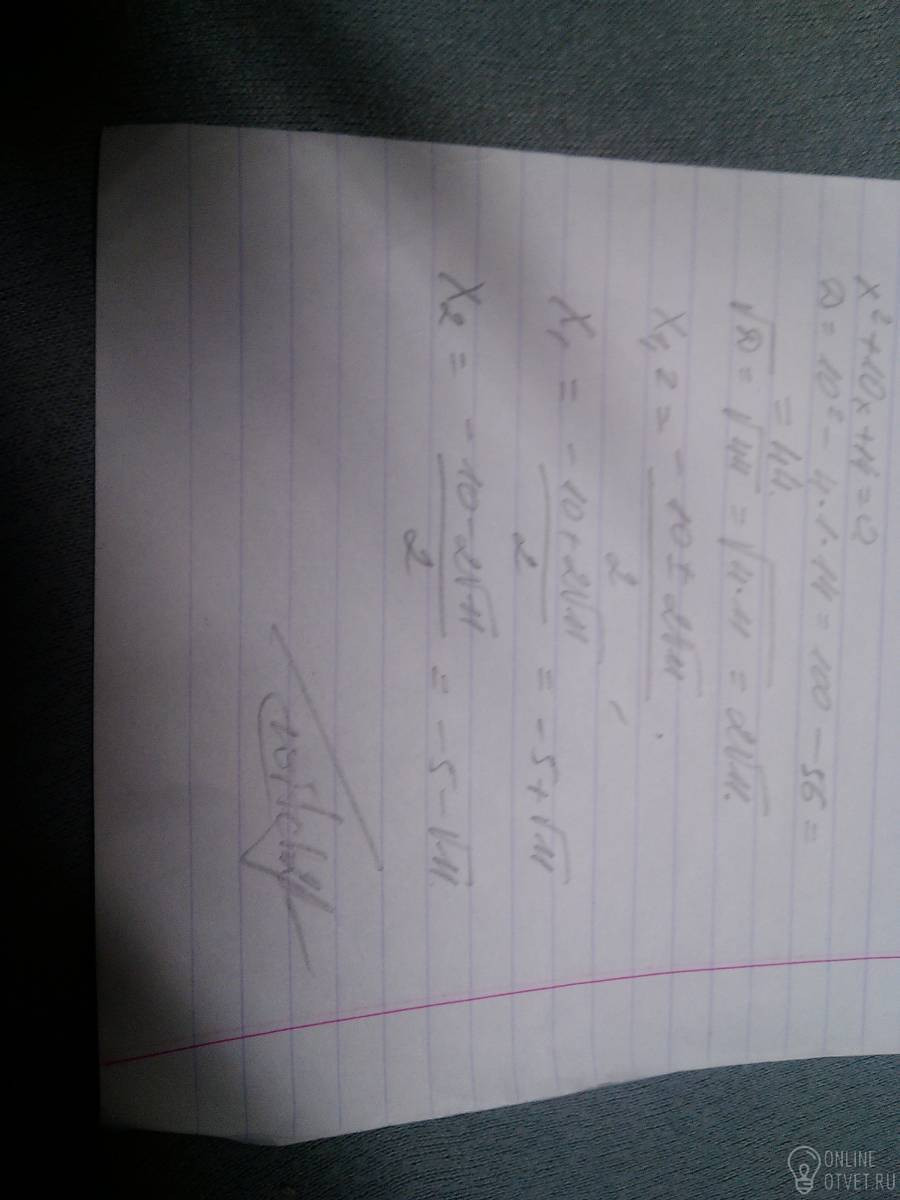 x² + 10x + 14 = 0
D = 10² - 4·1·14 = 100 - 56 =
= 44.
√D = √44 = √4·11 = 2√11.
x₁,₂ = -10 ± 2√11 / 2.
x₁ = -10 + 2√11 / 2 = -5 + √11
x₂ = -10 - 2√11 / 2 = -5 - √11.
ONLINE
OTVET.RU